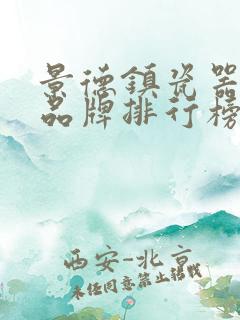 景德鎮瓷器
品牌排行榜
西安-北京
未经同意禁止转载